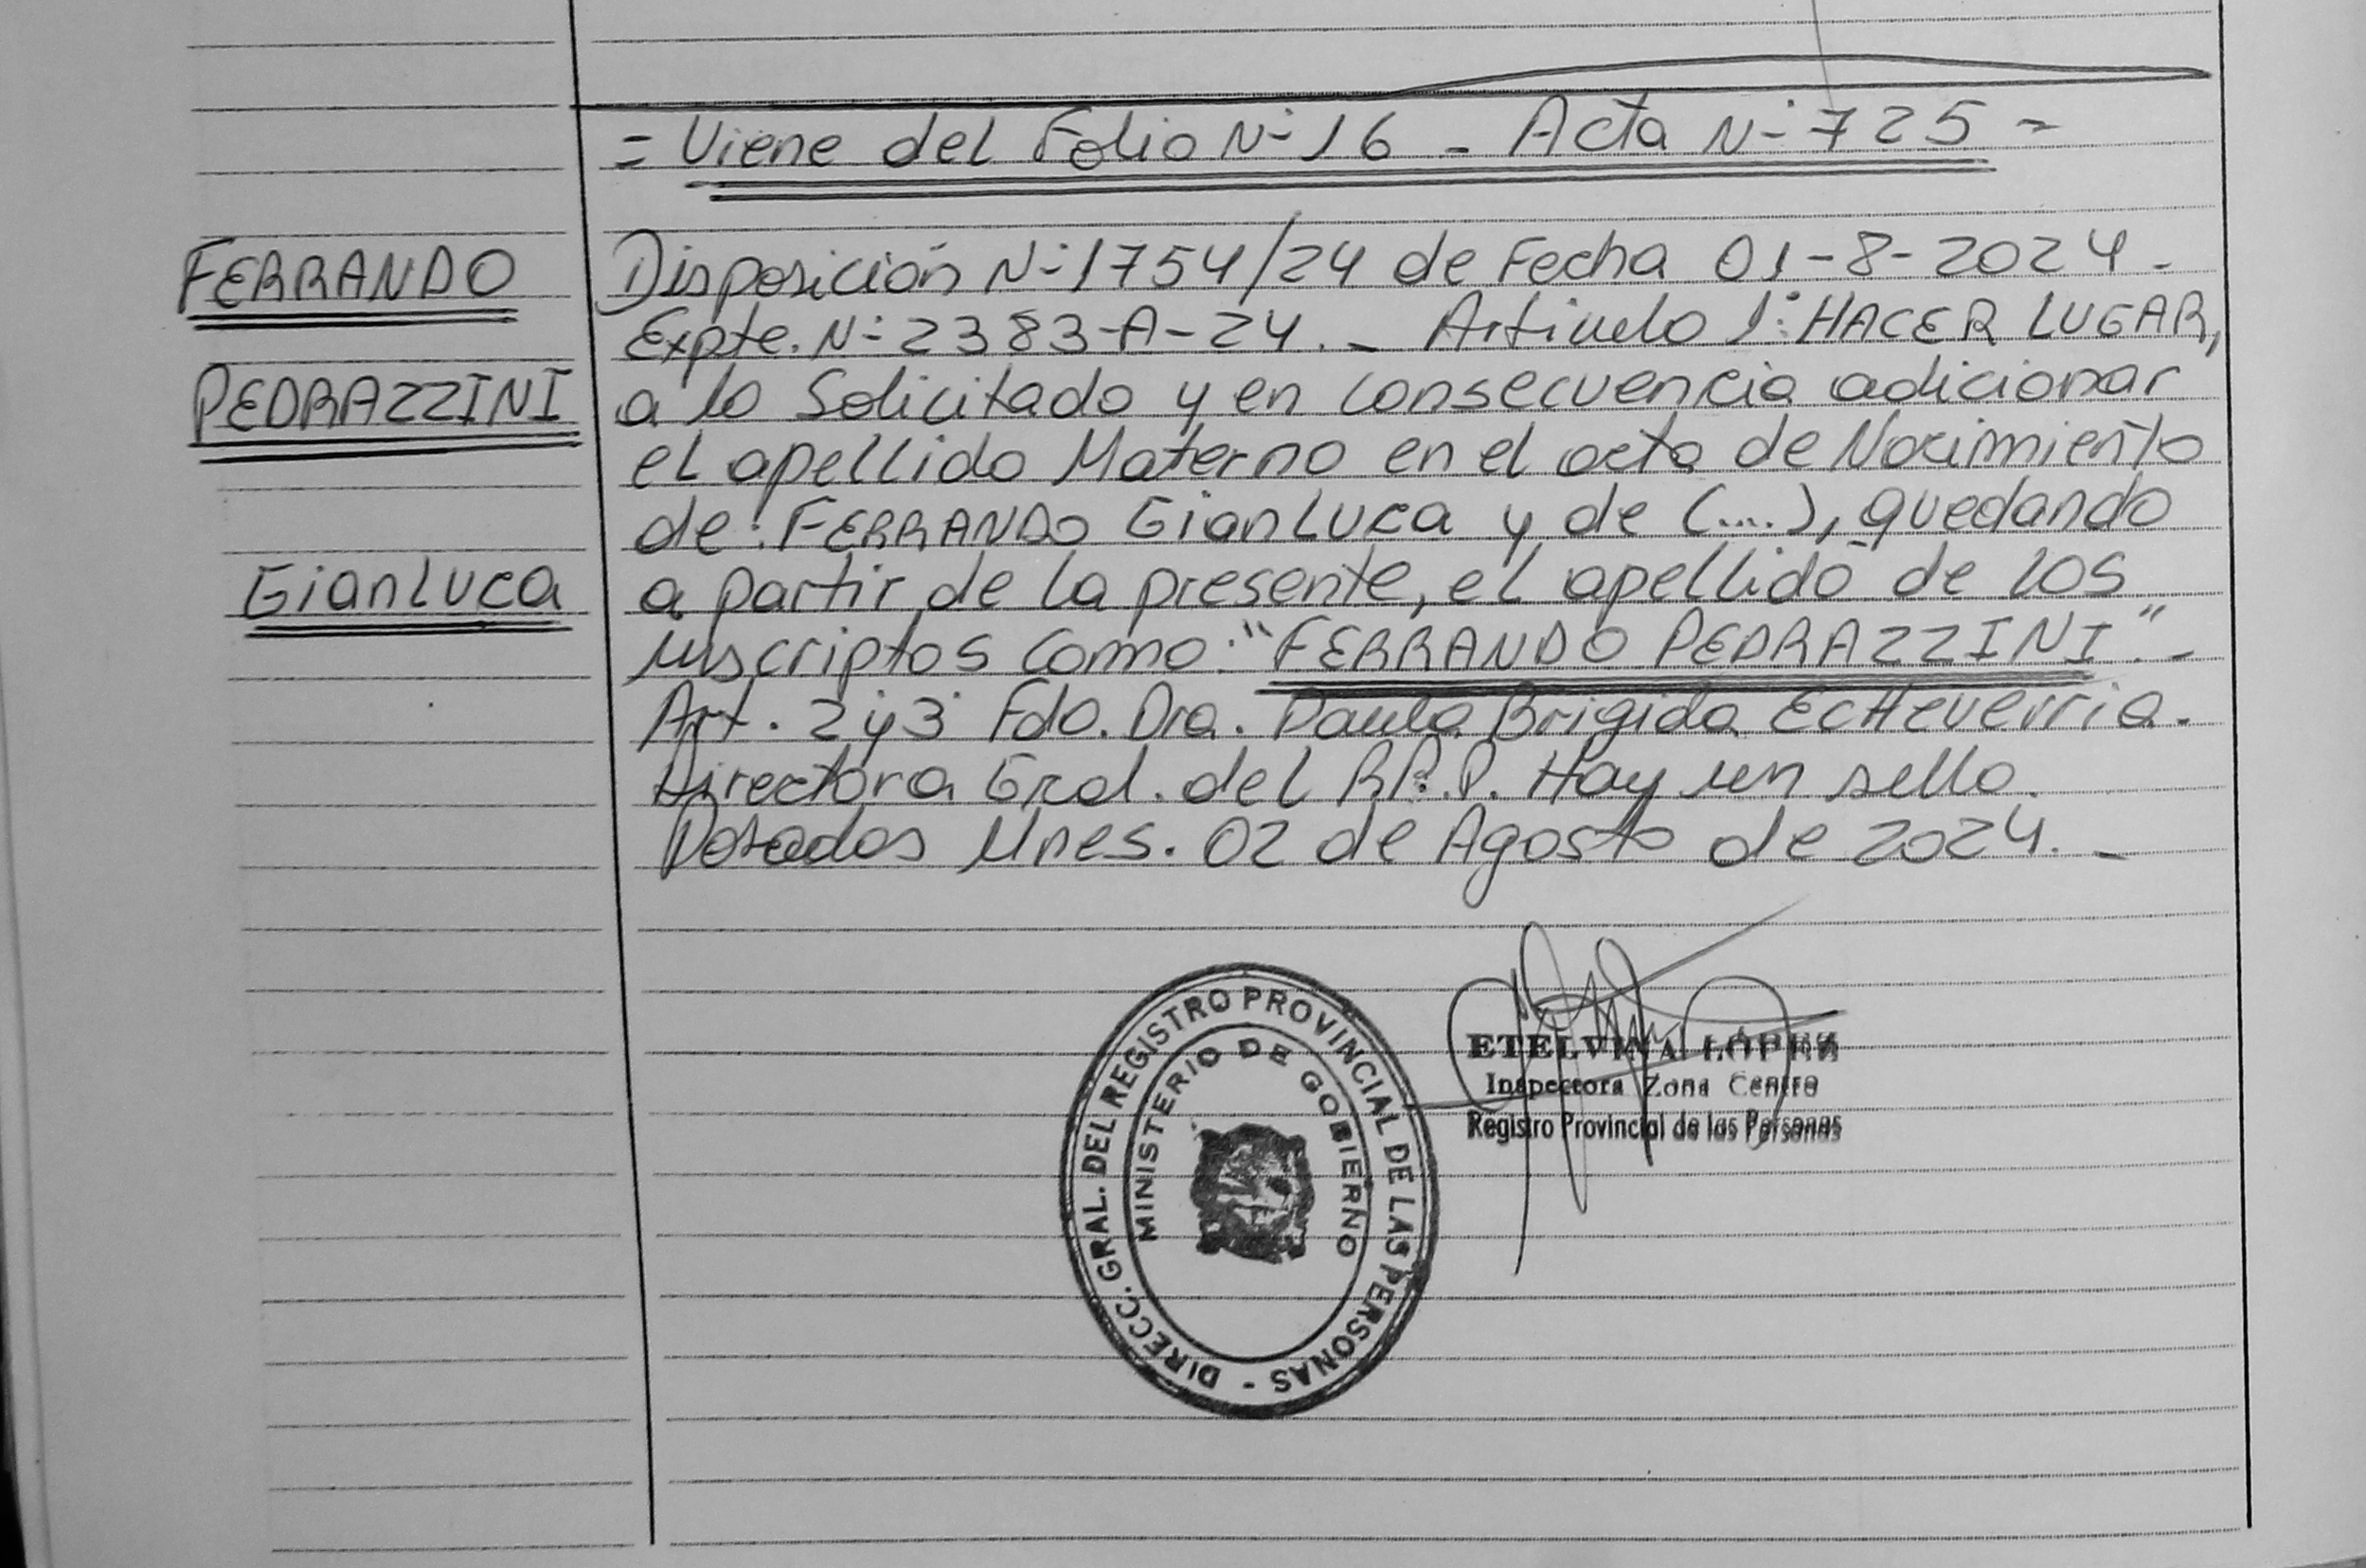 = Viene del Folio N° 16 - Acta N° 725 =
FERRANDO
PEDRAZZINI
GianLuca
Disposición N° 1754/24 de Fecha 01-8-2024.
Expte. N° 2383-A-24. - Artículo 1°: HACER LUGAR,
a lo Solicitado y en consecuencia adicionar
el apellido Materno en el acta de Nacimiento
de: FERRANDO GianLuca y de (....), quedando
a partir de la presente, el apellido de los
inscriptos como: "FERRANDO PEDRAZZINI". -
Art. 2 y 3° Fdo. Dra. Paula Brigida Echeverria.
Directora Gral. del R.P.P. Hay un sello.
Posadas Mnes. 02 de Agosto de 2024. -
DIRECC. GRAL. DEL REGISTRO PROVINCIAL DE LAS PERSONAS -
MINISTERIO DE GOBIERNO
ETELVINA LÓPEZ
Inspectora Zona Centro
Registro Provincial de las Personas